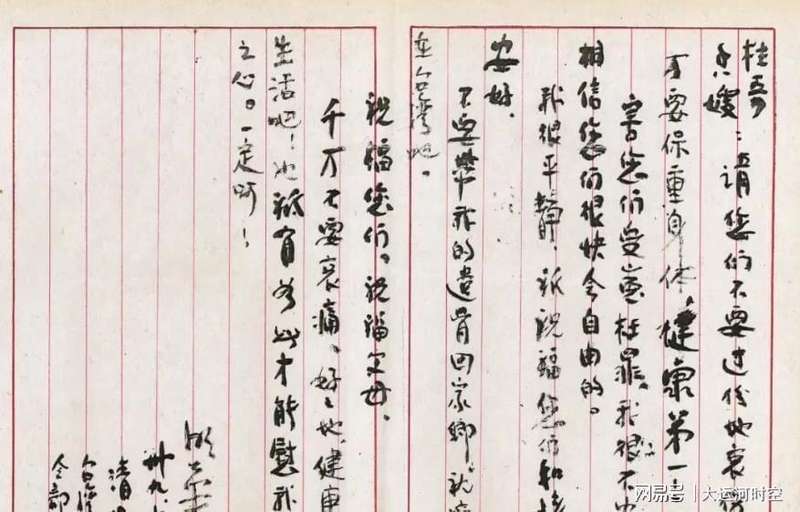 桂香
嫂：请您们不要过份地哀伤
不要保重身体健康第一！
害您们受冤枉罪、我很不
相信您们很快会自由的。
我很平静、祈祝福您们和
安好、
不要带我的遗骨回家乡、就
在台湾吧。
祝福您们。祝福父母、
千万不要哀痛、好好地健康
生活吧！也祇有如此才能慰我
之心。一定啊！
卅九、
台湾
网易号 | 大运河时空